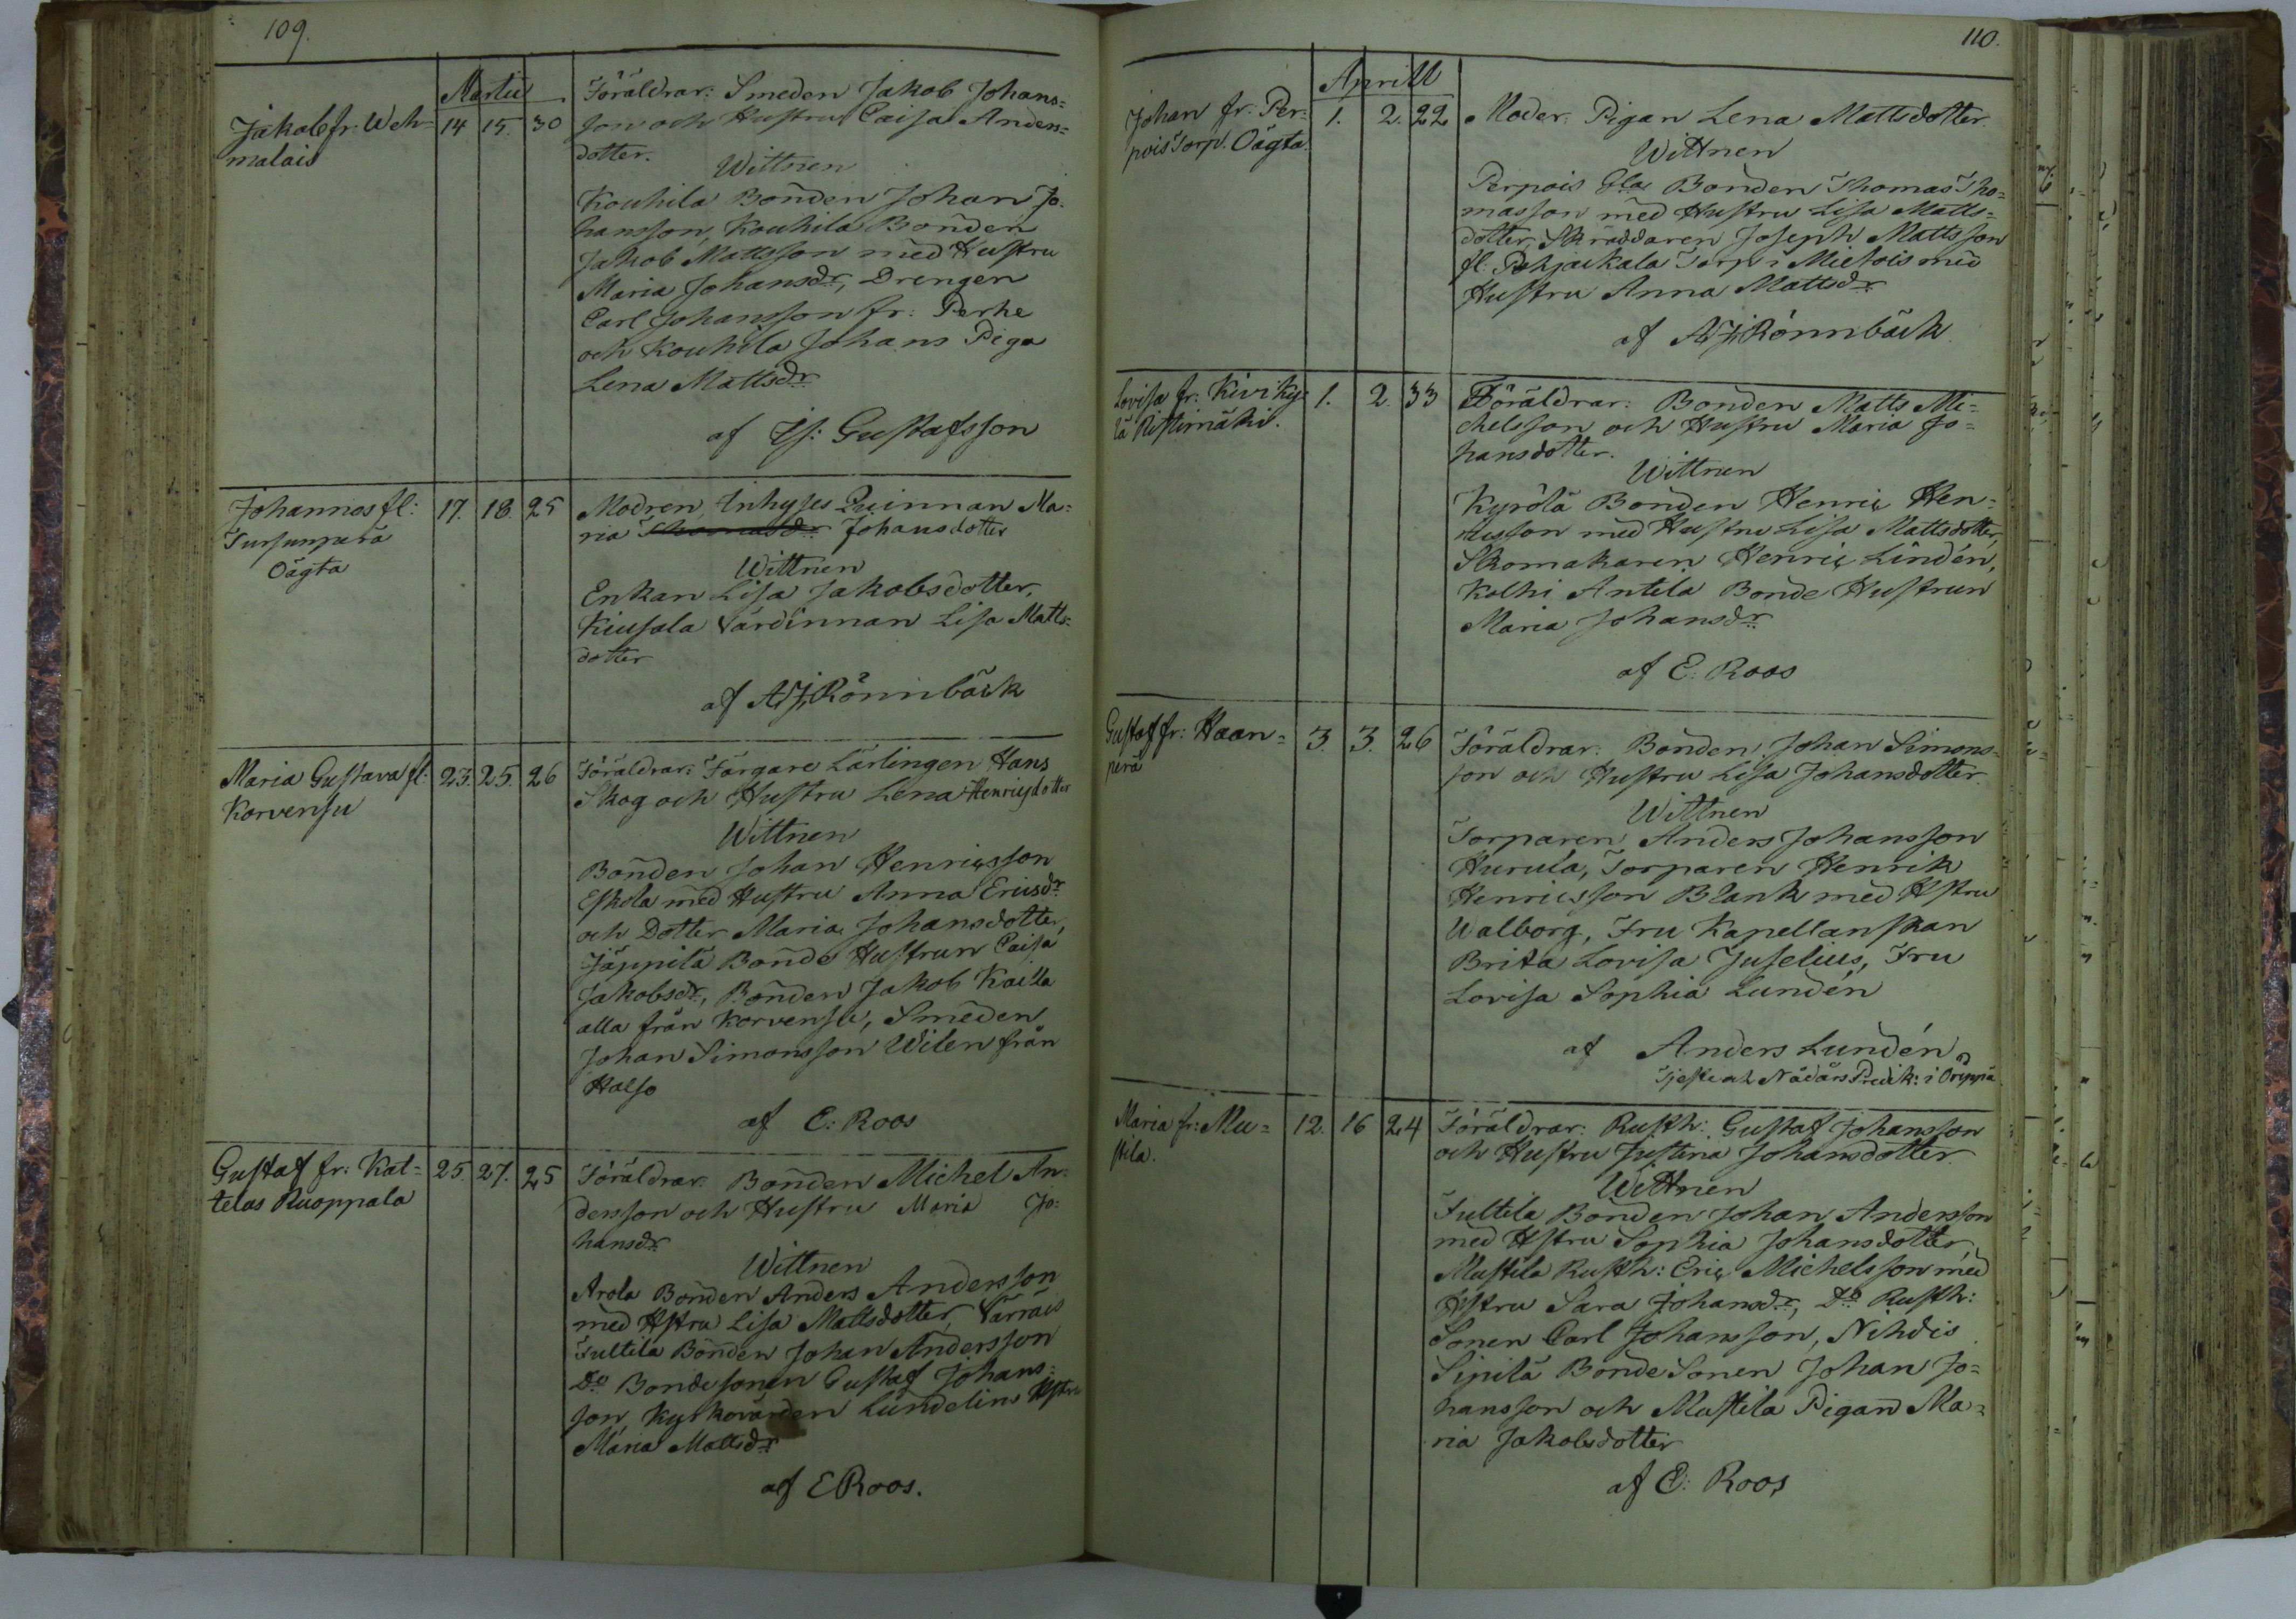 109.
Martii
Jakob fr: Weh=
malais
14 15. 30
Föräldrar: Smeden Jakob Johans=
son och Hustru Caisa Anders=
dotter.
Wittnen
Kouhila Bonden Johan Jo=
hansson, Kouhila Bonden
Jakob Mattsson med Hustru
Maria Johansdr, Drengen
Carl Johansson fr: Perhe
och Kouhila Johans Piga
Lena Mattsdr
af Is: Gustafsson
Johannes fl:
Tursunperä
Oägta
17. 18. 25
Modren, Inhyses Quinnan Ma=
ria Thomasdr Johansdotter
Wittnen
Enkan Lisa Jakobsdotter,
Kiusala Värdinnan Lisa Matts=
dotter
af A. J. Rönnbäck
Maria Gustava fl:
Korvensu
23. 25. 26
Föräldrar: Färgare Lärlingen Hans
Skog och Hustru Lena Henricsdotter
Wittnen
Bonden Johan Henricsson
Eskola med Hustru Anna Ericsdr
och Dotter Maria Johansdotter,
Jäppilä Bonde Hustrun Caisa
Jakobsdr, Bonden Jakob Kaitta
alla från Korvensu, Smeden
Johan Simonsson Wilen från
Halso
af E: Roos
Gustaf fr: Kat=
telas Ruoppala
25. 27. 25
Föräldrar: Bonden Michel An=
dersson och Hustru Maria Jo=
hansdr
Wittnen
Arola Bonden Anders Andersson
med Hstru Lisa Mattsdotter, Värräis
Tultila Bonden Johan Andersson
Do Bondesonen Gustaf Johans=
son, Kyrkovärden Lundelins Hstru
Maria Mattsdr
af E Roos.
110.
Aprill
Johan fr: Per=
pois Torp. Oägta.
1. 2. 22
Moder: Pigan Lena Mattsdotter.
Wittnen
Perpois Gla Bonden Thomas Tho=
masson med Hustru Lisa Matts=
dotter, Skräddaren Joseph Mattsson
fl. Pohjankala Torp i Mietois med
Hustru Anna Mattsdr
af A. J. Rönnbäck.
Lovisa fr: Kiviky=
lä Ristimäki.
1. 2. 33
Föräldrar: Bonden Matts Mi=
chelsson och Hustru Maria Jo=
hansdotter.
Wittnen
Kyrölä Bonden Henric Hen=
ricsson med Hustru Lisa Mattsdotter,
Skomakaren Henric Lindén,
Kolhi Antila Bonde Hustrun
Maria Johansdr
af E: Roos
Gustaf fr: Haan=
perä
3. 3. 26
Föräldrar: Bonden Johan Simons=
son och Hustru Lisa Johansdotter.
Wittnen
Torparen Anders Johansson
Hurula, Torparen Henrik
Henricsson Blank med Hstru
Walborg, Fru Kapellanskan
Brita Lovisa Juselius, Fru
Lovisa Sophia Lundén
af Anders Lundén
Nådårs Predik: i Oripää
Maria fr: Mu=
stila.
12. 16 24
Föräldrar: Rusth: Gustaf Johansson
och Hustru Justina Johansdotter
Wittnen
Tultila Bonden Johan Andersson
med Hstru Sophia Johansdotter,
Mustila Rusth: Eric Michelsson med
Hstru Sara Johansdr, Do Rusth:
Sonen Carl Johansson, Nihdis
Sipilä Bonde Sonen Johan Jo=
hansson och Mustila Pigan Ma=
ria Jakobsdotter
af E: Roos